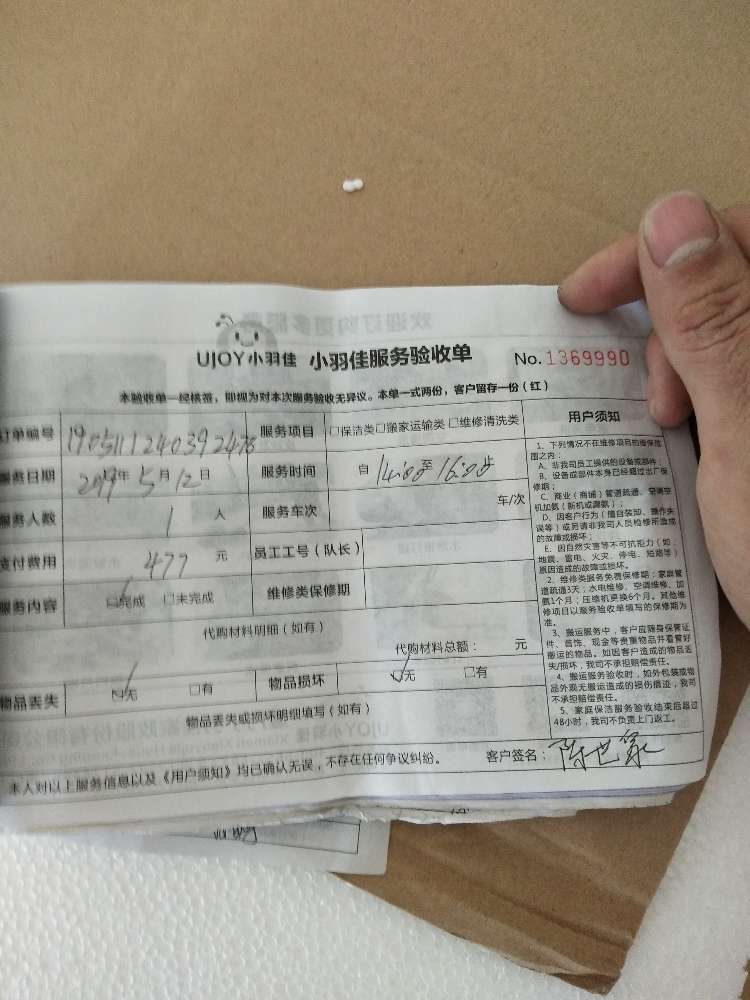 UJOY小羽佳 小羽佳服务验收单 No.1369990
本验收单一经核签，即视为对本次服务验收无异议。本单一式两份，客户留存一份（红）
订单编号 服务项目 □保洁类□搬家运输类 □维修清洗类
服务日期 2019年5月12日 服务时间 自 14:00 至 16:00 步
服务人数 1 人 服务车次 车/次
支付费用 477 元 员工工号（队长）
服务内容 □完成 □未完成 维修类保修期
代购材料明细（如有）
代购材料总额： 元
物品丢失 □无 □有 物品损坏 □无 □有
物品丢失或损坏明细填写（如有）
本人对以上服务信息以及《用户须知》均已确认无误，不存在任何争议纠纷。 客户签名：
用户须知
1、下列情况不在维修项目的保修范
围之内：
A、非我司员工提供的设备或部件；
B、设备或部件本身已经超过出厂保
修期；
C、商业（商铺）管道疏通、空调空
机加氨（新机或漏氨）；
D、因客户行为（擅自装卸、操作失
误等）或另请非我司人员检修所造成
的故障或损坏；
E、因自然灾害等不可抗拒力（如：
地震、雷电、火灾、停电、短路等）
原因造成的故障或损坏。
2、维修类服务免费保修期：家庭管
道疏通3天；水电维修、空调维修、加
氨1个月；压缩机更换6个月。其他维
修项目以服务验收单填写的保修期为
准。
3、搬运服务中，客户应随身保管证
件、首饰、现金等贵重物品并看管好
搬运的物品。如因客户造成的物品丢
失/损坏，我司不承担赔偿责任。
4、搬运服务验收时，如外包装或物
品外观无搬运造成的损伤痕迹，我司
不承担赔偿责任。
5、家庭保洁服务验收结束后超过
48小时，我司不负责上门返工。